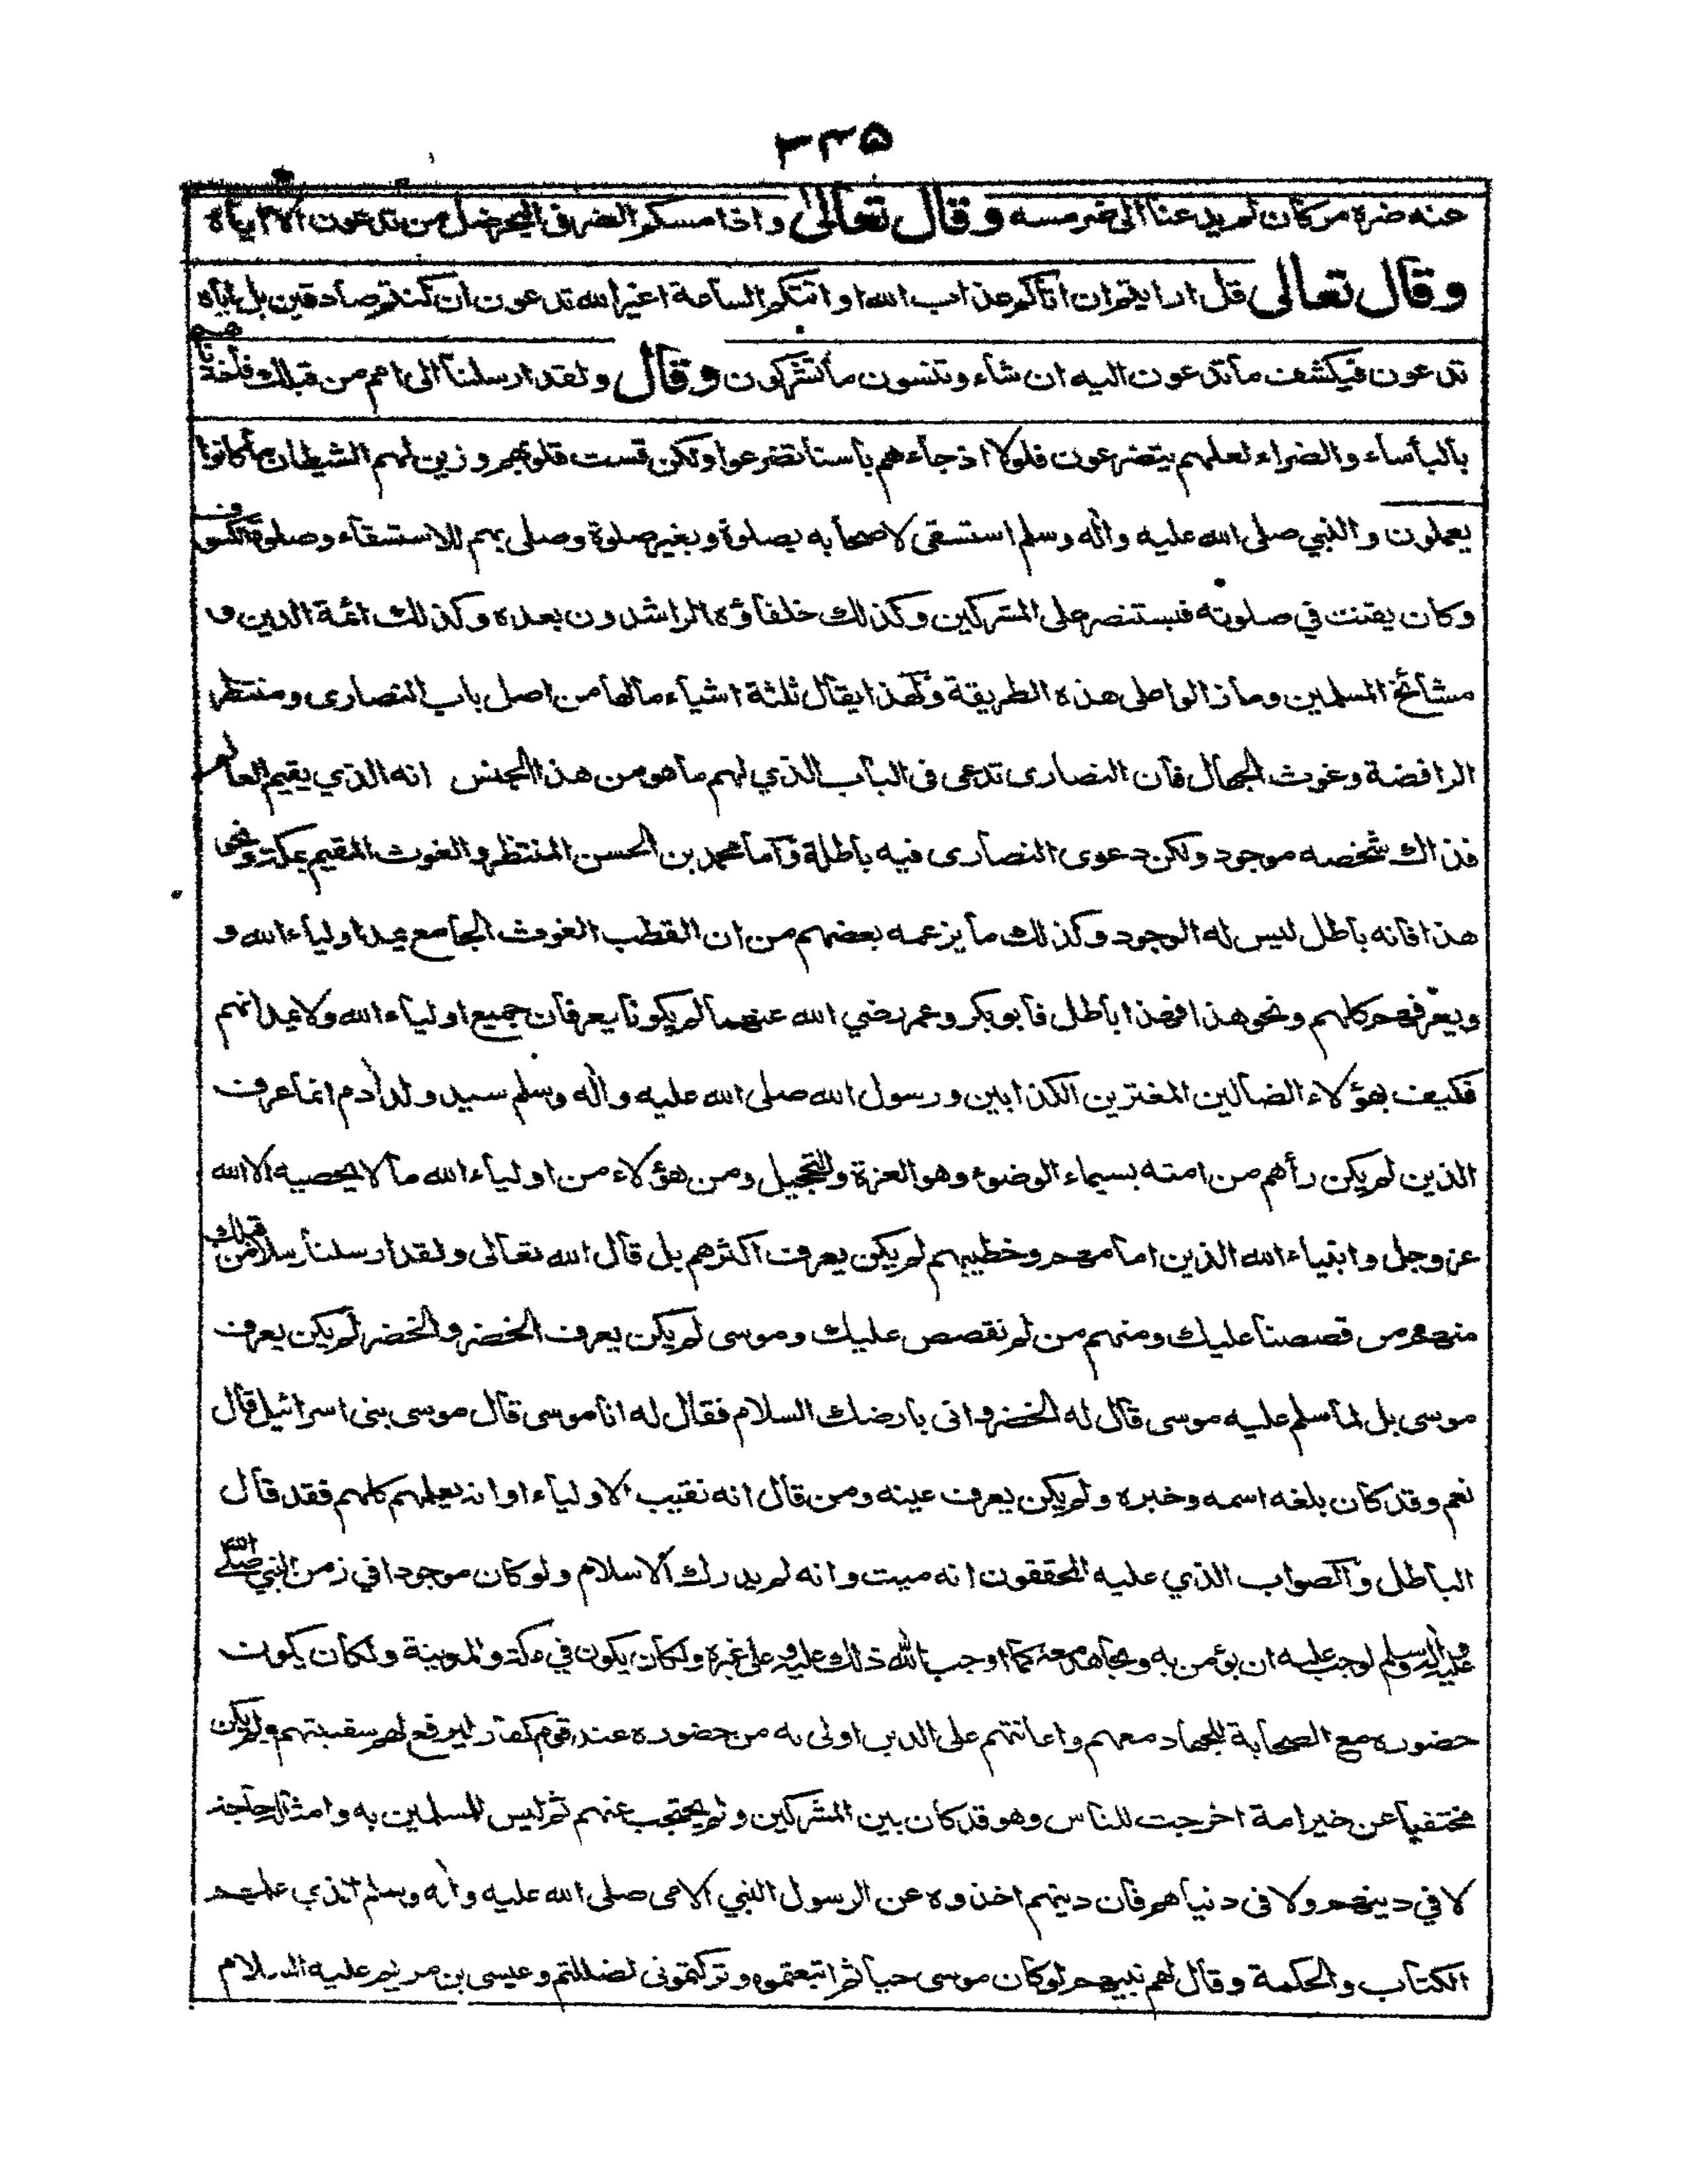 ٢٣٥
عنه ضره مركان لم يدعنا الى ضر مسه وقال تعالى واذا مسكم الضر فى البحر ضل من تدعون الا اياه
وقال تعالى قل ارايتم ان اتاكم عذاب الله او اتتكم الساعة اغير الله تدعون ان كنتم صادقين بل اياه
تدعون فيكشف ما تدعون اليه ان شاء وتنسون ما تشركون وقال ولقد ارسلنا الى امم من قبلك فاخذناهم
بالبأساء والضراء لعلهم يتضرعون فلولا اذ جاءهم بأسنا تضرعوا ولكن قست قلوبهم وزين لهم الشيطان ما كانوا
يعملون والنبي صلى الله عليه واله وسلم استسقى لاصحابه بصلوة وبغير صلوة وصلى بهم للاستسقاء وصلوة الكسوف
وكان يقنت في صلوته فيستنصر على المشركين وكذلك خلفاؤه الراشدون بعده وكذلك ائمة الدين و
مشائخ المسلمين وما زالوا على هذه الطريقة ولهذا يقال ثلثة اشياء مالها من اصل باب النصارى ومنتظر
الرافضة وغوث الجهال فان النصارى تدعى فى الباب الذي لهم ما هو من هذا الجنس انه الذي يقيم العالم
فذاك شخصه موجود ولكن دعوى النصارى فيه باطلة واما محمد بن الحسن المنتظر والغوث المقيم بمكة ونحو
هذا فانه باطل ليس له الوجود وكذلك ما يزعمه بعضهم من ان القطب الغوث الجامع يمد اولياء الله و
ويعرفهم كلهم ونحو هذا فهذا باطل فابو بكر وعمر رضي الله عنهما لم يكونا يعرفان جميع اولياء الله ولا يمدانهم
فكيف بهؤلاء الضالين المغترين الكذابين ورسول الله صلى الله عليه واله وسلم سيد ولد ادم انما عرف
الذين لم يكن رأهم من امته بسيماء الوضوء وهو الغرة والتحجيل ومن هؤلاء من اولياء الله ما لا يحصيه الا الله
عز وجل وانبياء الله الذين امامهم وخطيبهم لم يكن يعرف اكثرهم بل قال الله تعالى ولقد ارسلنا رسلا من قبلك
منهم من قصصنا عليك ومنهم من لم نقصص عليك وموسى لم يكن يعرف الخضر والخضر لم يكن يعرف
موسى بل لما سلم عليه موسى قال له الخضر وانى بارضك السلام فقال له انا موسى قال موسى بنى اسرائيل قال
نعم وقد كان بلغه اسمه وخبره ولم يكن يعرف عينه ومن قال انه نقيب الاولياء او انه يعلمهم كلهم فقد قال
الباطل والصواب الذي عليه المحققون انه ميت وانه لم يدرك الاسلام ولو كان موجودا في زمن النبي صلى الله
عليه واله وسلم لوجب عليه ان يؤمن به ويجاهد معه كما اوجب الله ذلك عليه وعلى غيره ولكان يكون في مكة والمدينة ولكان يكون
حضوره مع الصحابة للجهاد معهم واعانتهم على الدين اولى به من حضوره عند قوم كفار ليرفع لهم سفينتهم ولم يكن
مختفيا عن خير امة اخرجت للناس وهو قد كان بين المشركين ولم يحتجب عنهم ثم ليس للمسلمين به وامثاله حاجة
لا في دينهم ولا فى دنياهم فان دينهم اخذوه عن الرسول النبي الامى صلى الله عليه واله وسلم الذي علمهم
الكتاب والحكمة وقال لهم نبيهم لو كان موسى حيا ثم اتبعتموه وتركتمونى لضللتم وعيسى بن مريم عليه السلام